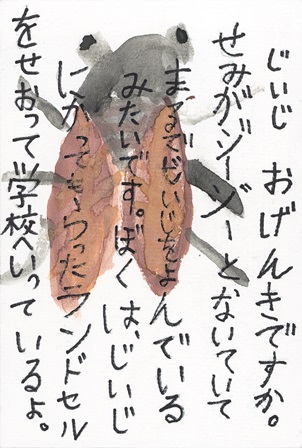 じいじ おげんきですか。
せみがジージーとないていて
まるでじいじをよんでいる
みたいです。ぼくは、じいじ
にかってもらったランドセル
をせおって学校へいっているよ。